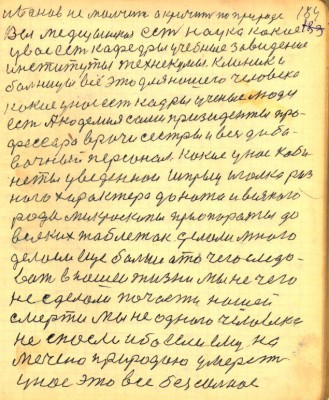 и Панов не молчит а кричит по природе
184
182
Вы медицина ест наука какие
у вас ест кафедры учебные заведение
институты технекумы. клиники
больници всё это для нашего человека
какие у нас ест кадры ученые люди
ест Академия сами призиденты про-
фессара врачи сестры и вся до ба-
вочный персонал. Какие у нас каби-
неты уведенной шприц иголка раз
ного характера до ната и всякого
рода микроскопы препораты до
всяких таблеток сделали много
делаем еще больше а то чего следо-
вает в нашей жизни мы не чего
не сделали по части нашей
смерти мы не одного человека
не спасли ибо если ему на
мечено природаю умереть
у нас это все безсилное